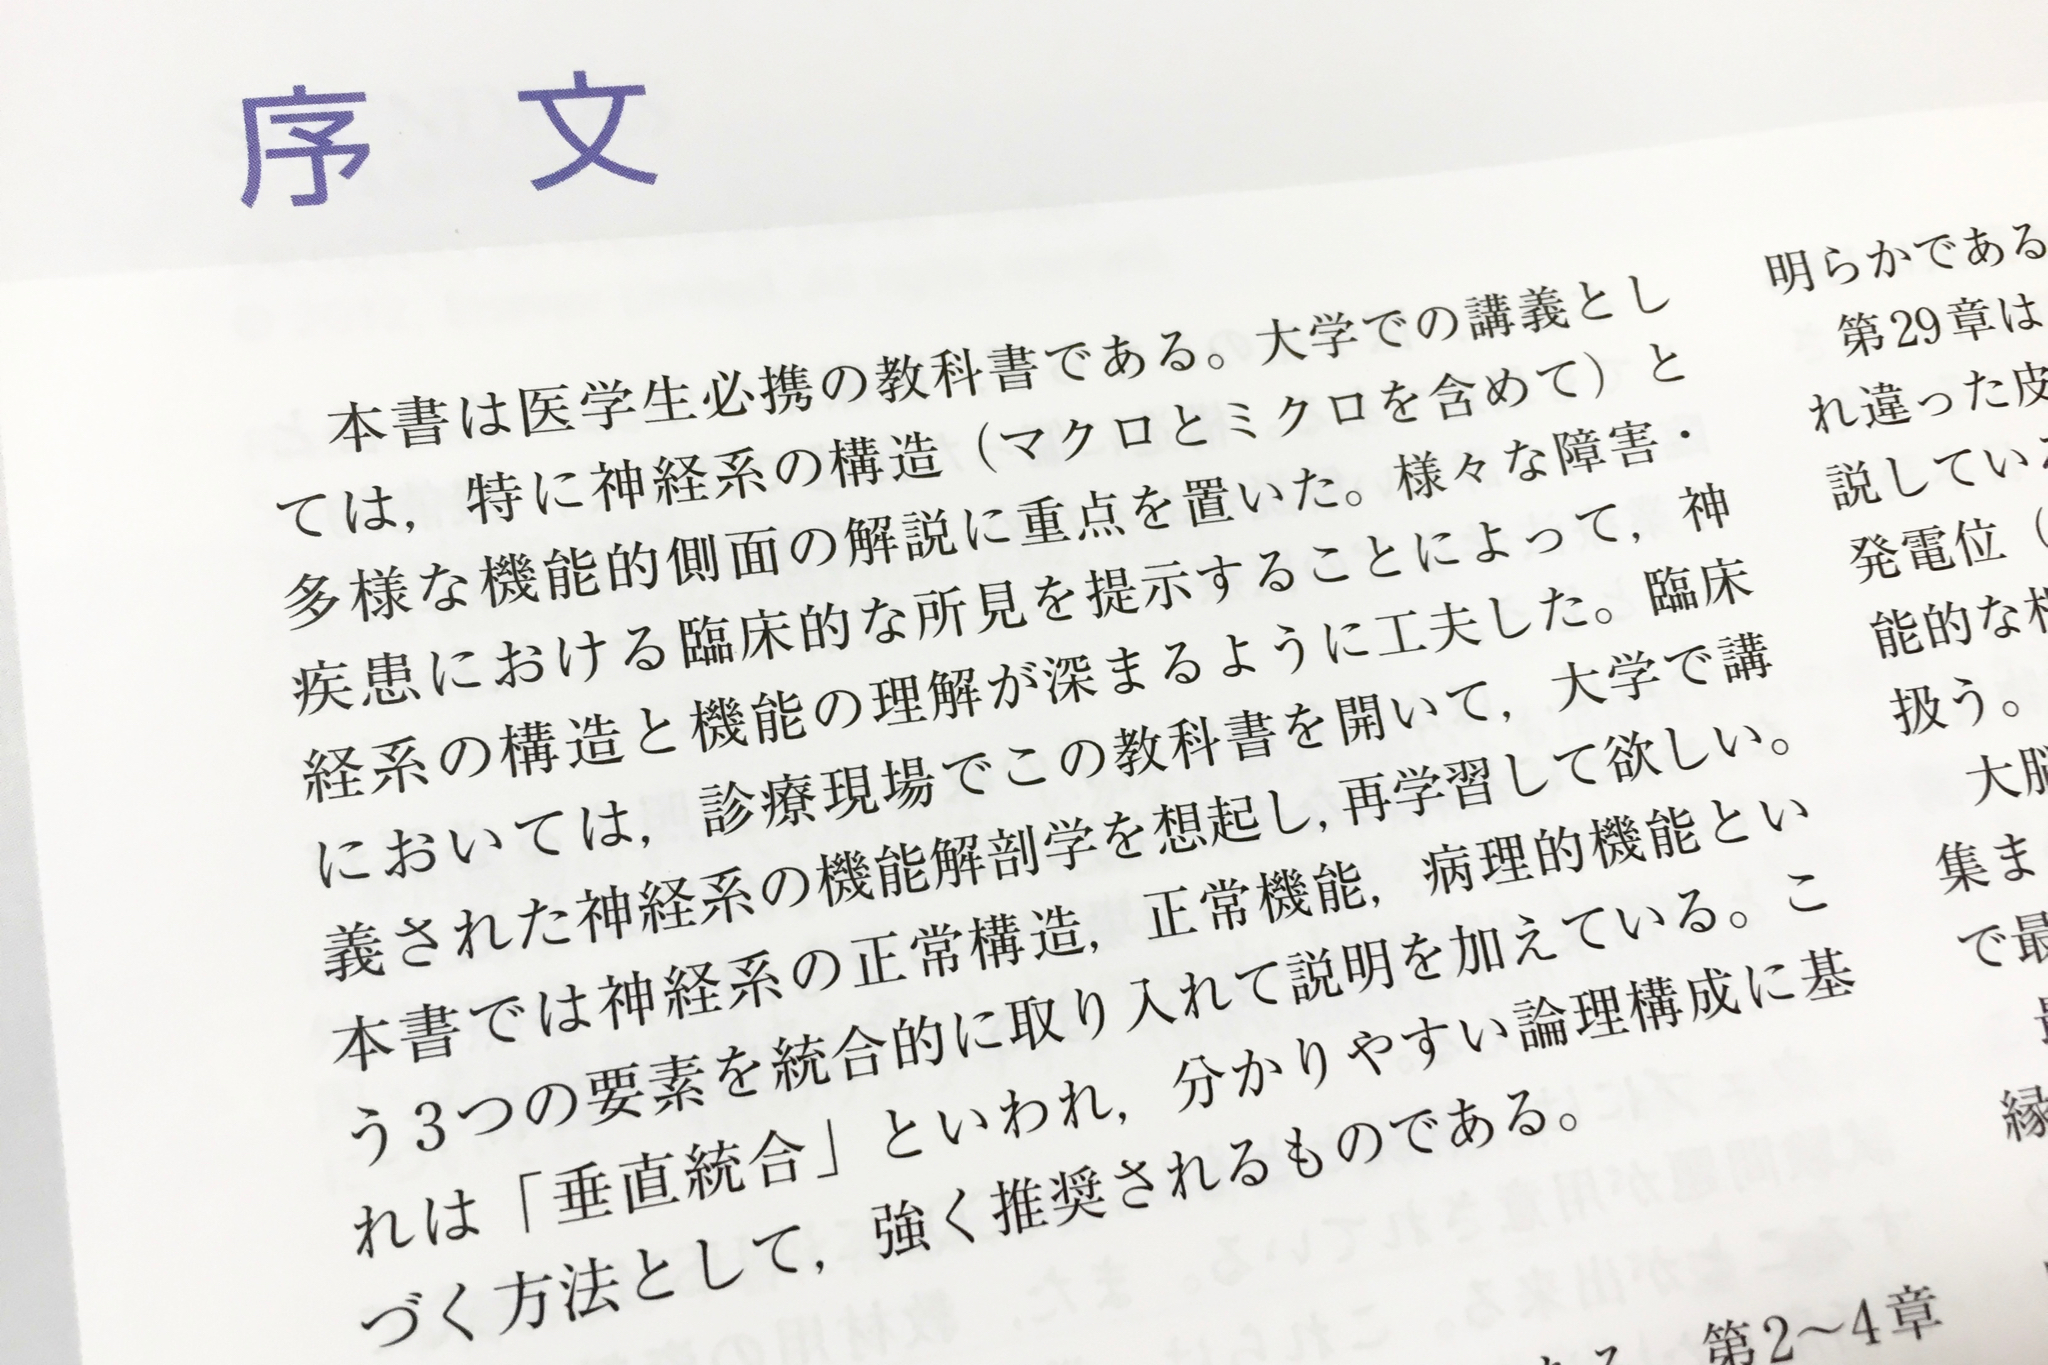 序 文
本書は医学生必携の教科書である。大学での講義とし
ては，特に神経系の構造（マクロとミクロを含めて）と
多様な機能的側面の解説に重点を置いた。様々な障害・
疾患における臨床的な所見を提示することによって，神
経系の構造と機能の理解が深まるように工夫した。臨床
においては，診療現場でこの教科書を開いて，大学で講
義された神経系の機能解剖学を想起し，再学習して欲しい。
本書では神経系の正常構造，正常機能，病理的機能とい
う3つの要素を統合的に取り入れて説明を加えている。こ
れは「垂直統合」といわれ，分かりやすい論理構成に基
づく方法として，強く推奨されるものである。
第2〜4章
明らかである
第29章は
れ違った皮
説してい
発電位（
能的な
扱う。
大脳
集ま
で最
縁